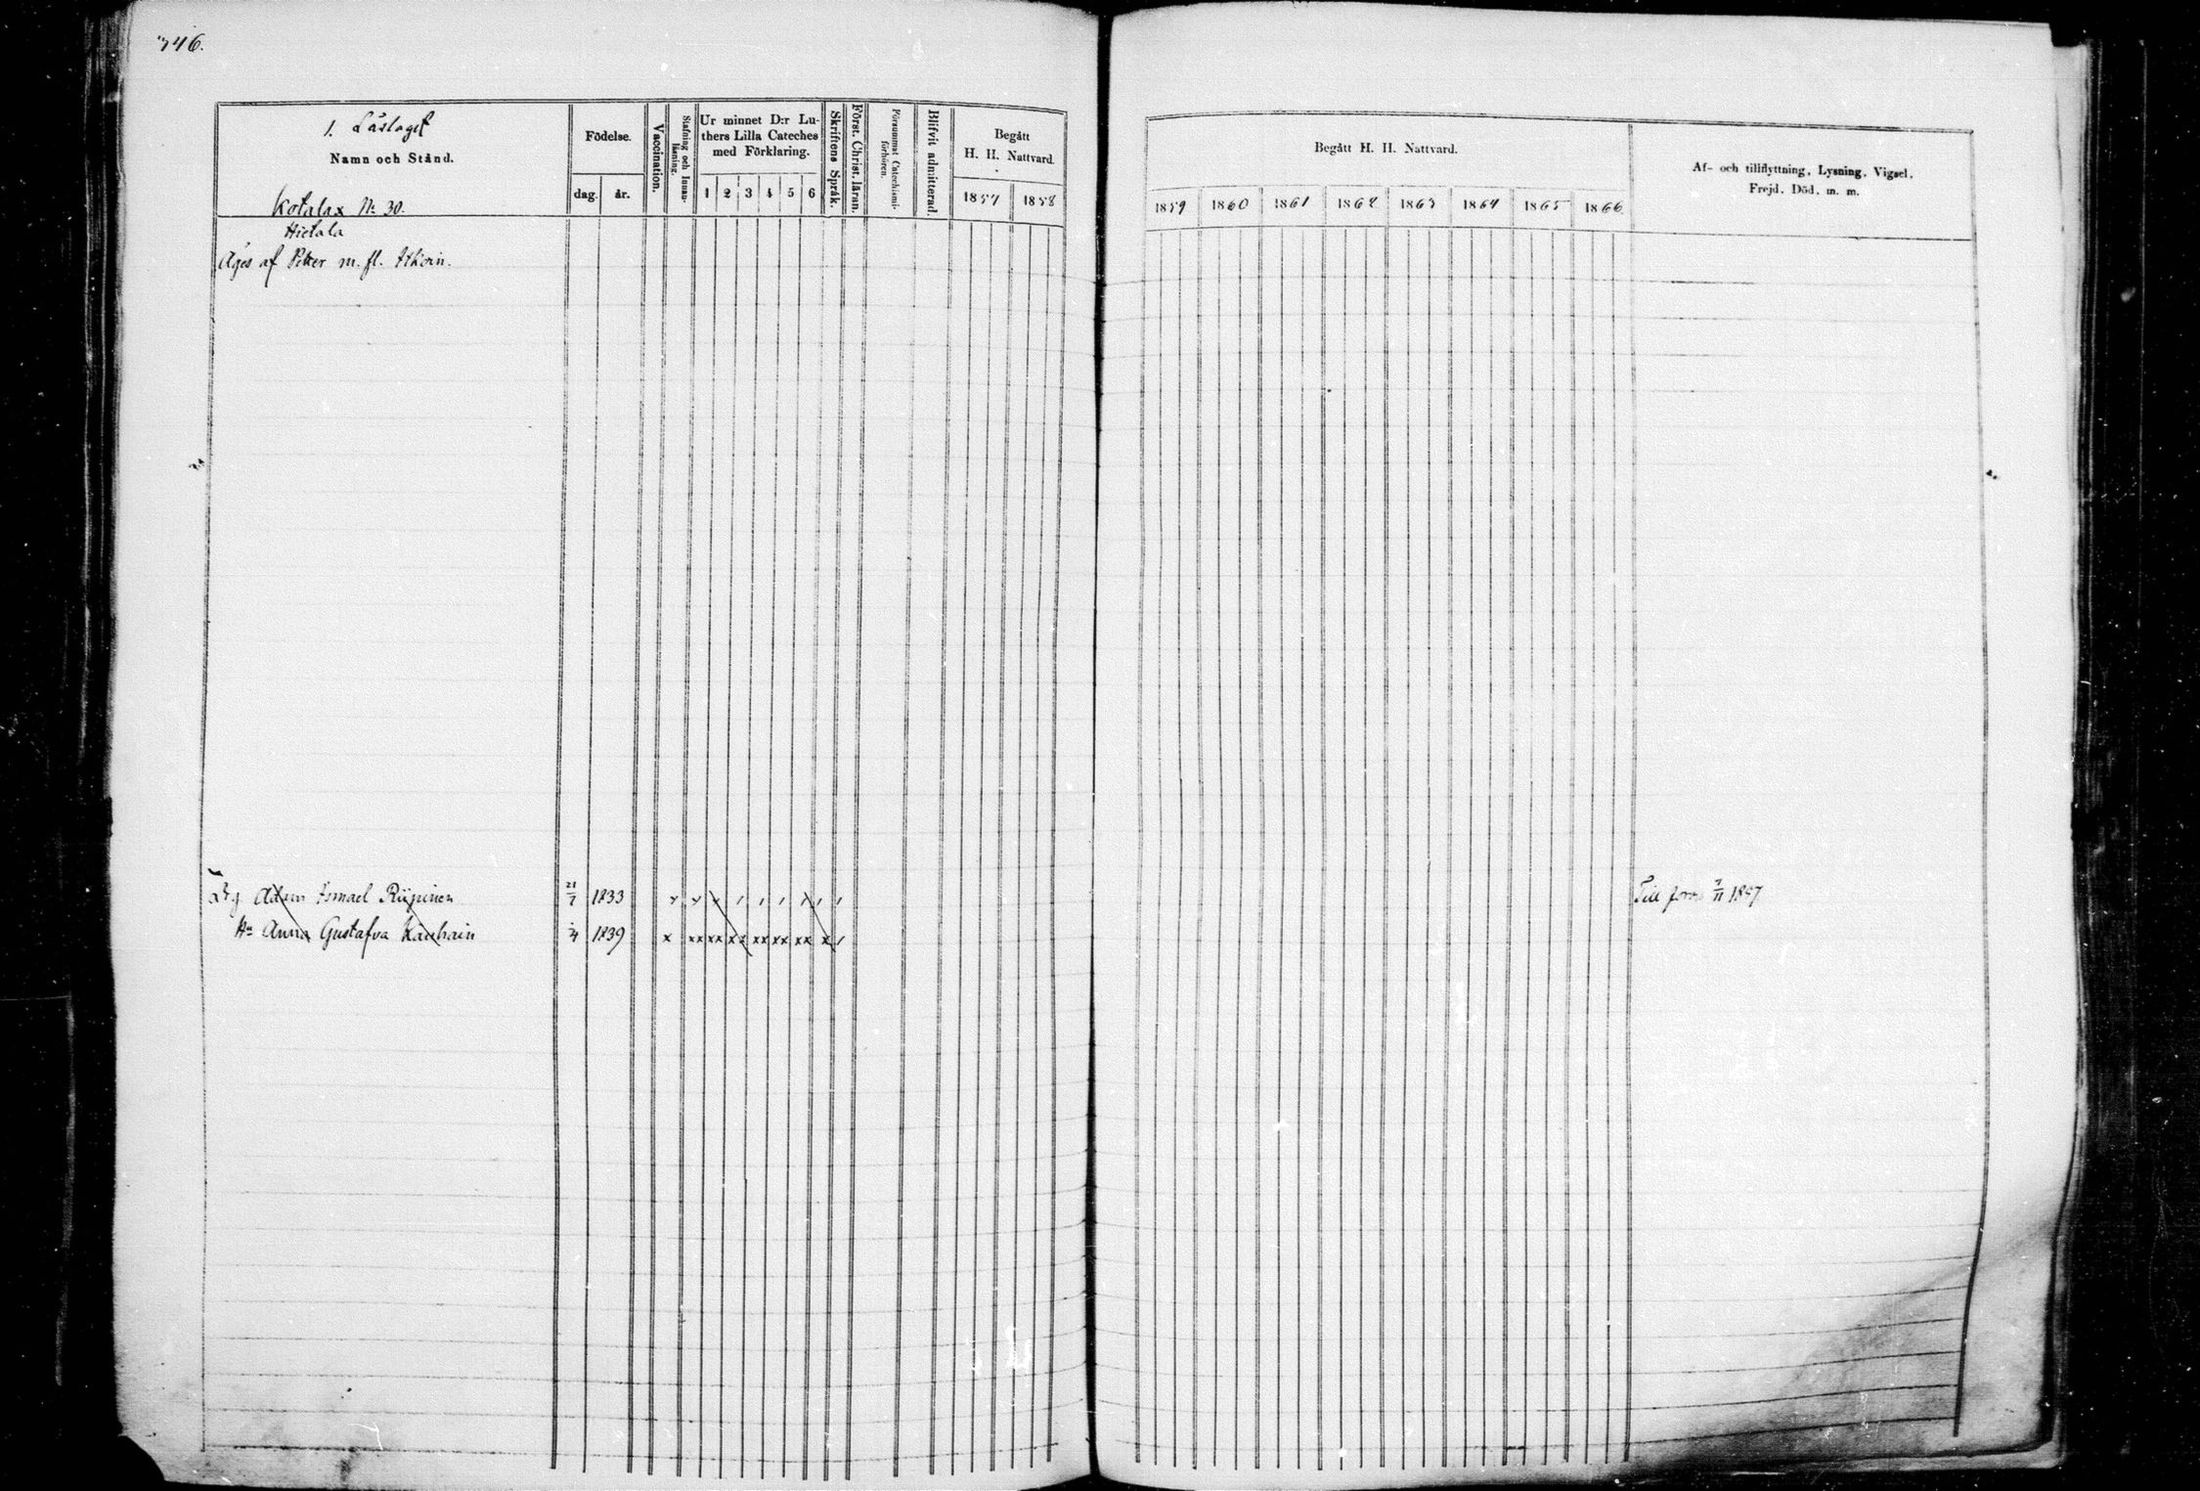 346.
1. Läslaget
Namn och Stånd.
Kotalax No 30.
Födelse.
dag. år.
Vaccination.
Stafning och Innan-läsning.
Ur minnet D:r Lu-
thers Lilla Cateches
med Förklaring.
1 2 3 4 5 6
Skriftens Språk.
Först. Christ. läran.
Försummat Catechismi-förhören.
Blifvit admitterad.
Begått
H. H. Nattvard.
1857 1858
Begått H. H. Nattvard.
1859 1860 1861 1862 1863 1864 1865 1866
Af- och tillflyttning, Lysning, Vigsel,
Frejd, Död, m. m.
Hietala
Äges af Petter m. fl.
Adam Ismael Riipinen 21/7 1833 Till 7/11 1857
Hu Anna Gustafva Kauhain 4 1839 x xx xx xx xx xx xx x /